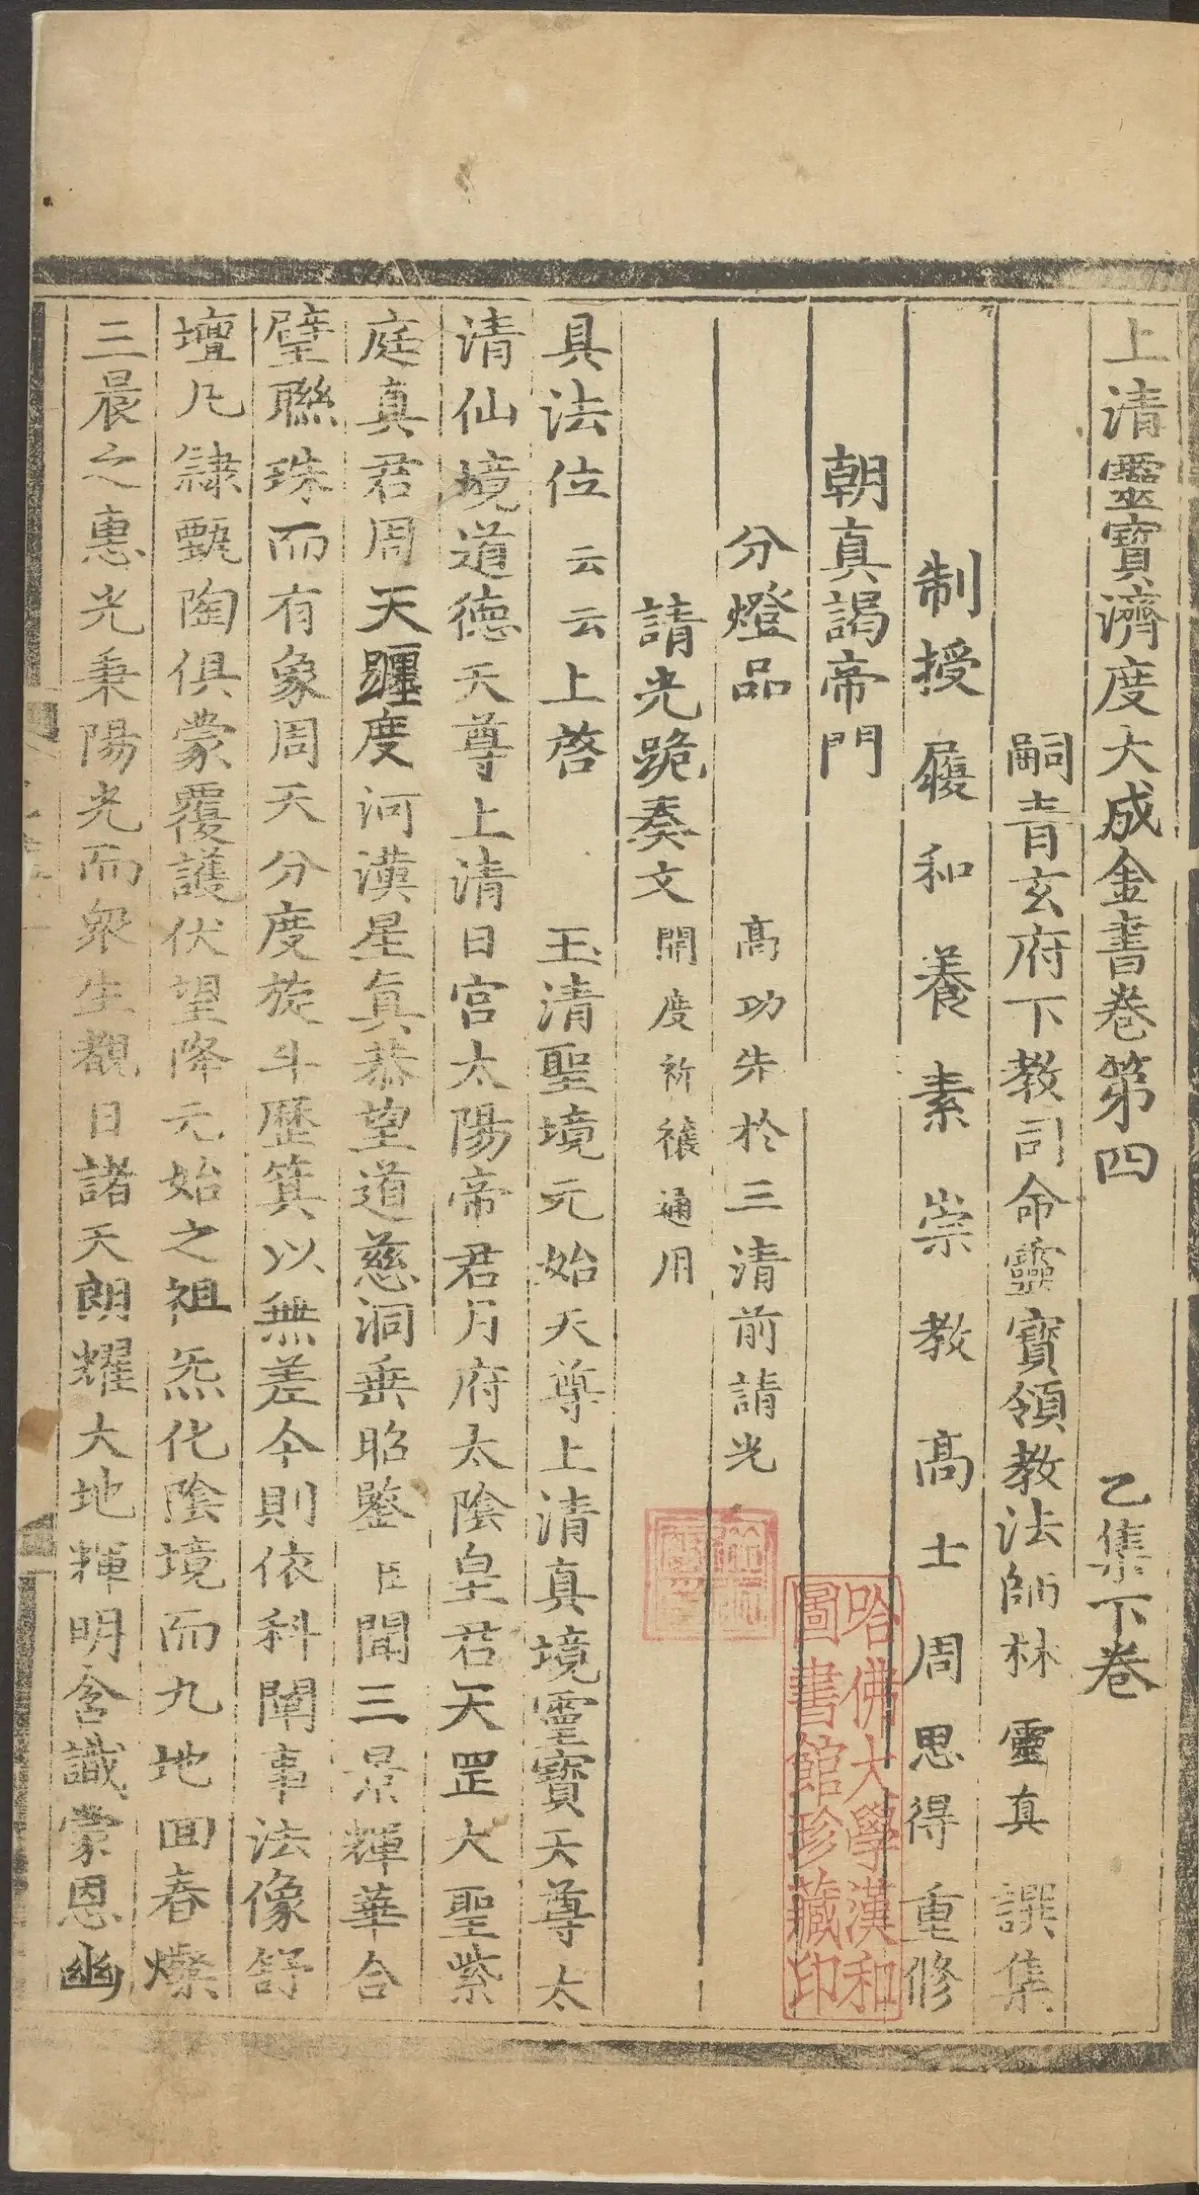 上清靈寶濟度大成金書卷第四 乙集下卷
嗣青玄府下教司命靈寶領教法師林靈真 譔集
制授履和養素崇教高士周思得重修
朝真謁帝門
分燈品 高功先於三清前請光
請光跪奏文 開度祈禳通用
具法位云云上啓 玉清聖境元始天尊上清真境靈寶天尊太
清仙境道德天尊上清日宮太陽帝君月府太陰皇君天罡大聖紫
庭真君周天躔度河漢星真恭望道慈洞垂昭鑒臣聞三景輝華合
璧聯珠而有象周天分度旋斗歷箕以無差今則依科闡事法像舒
壇凡隸甄陶俱蒙覆護伏望降元始之祖炁化陰境而九地回春燦
三晨之惠光秉陽光而衆生覩日諸天朗耀大地輝明含識蒙恩幽
哈佛大學漢和
圖書館珍藏印